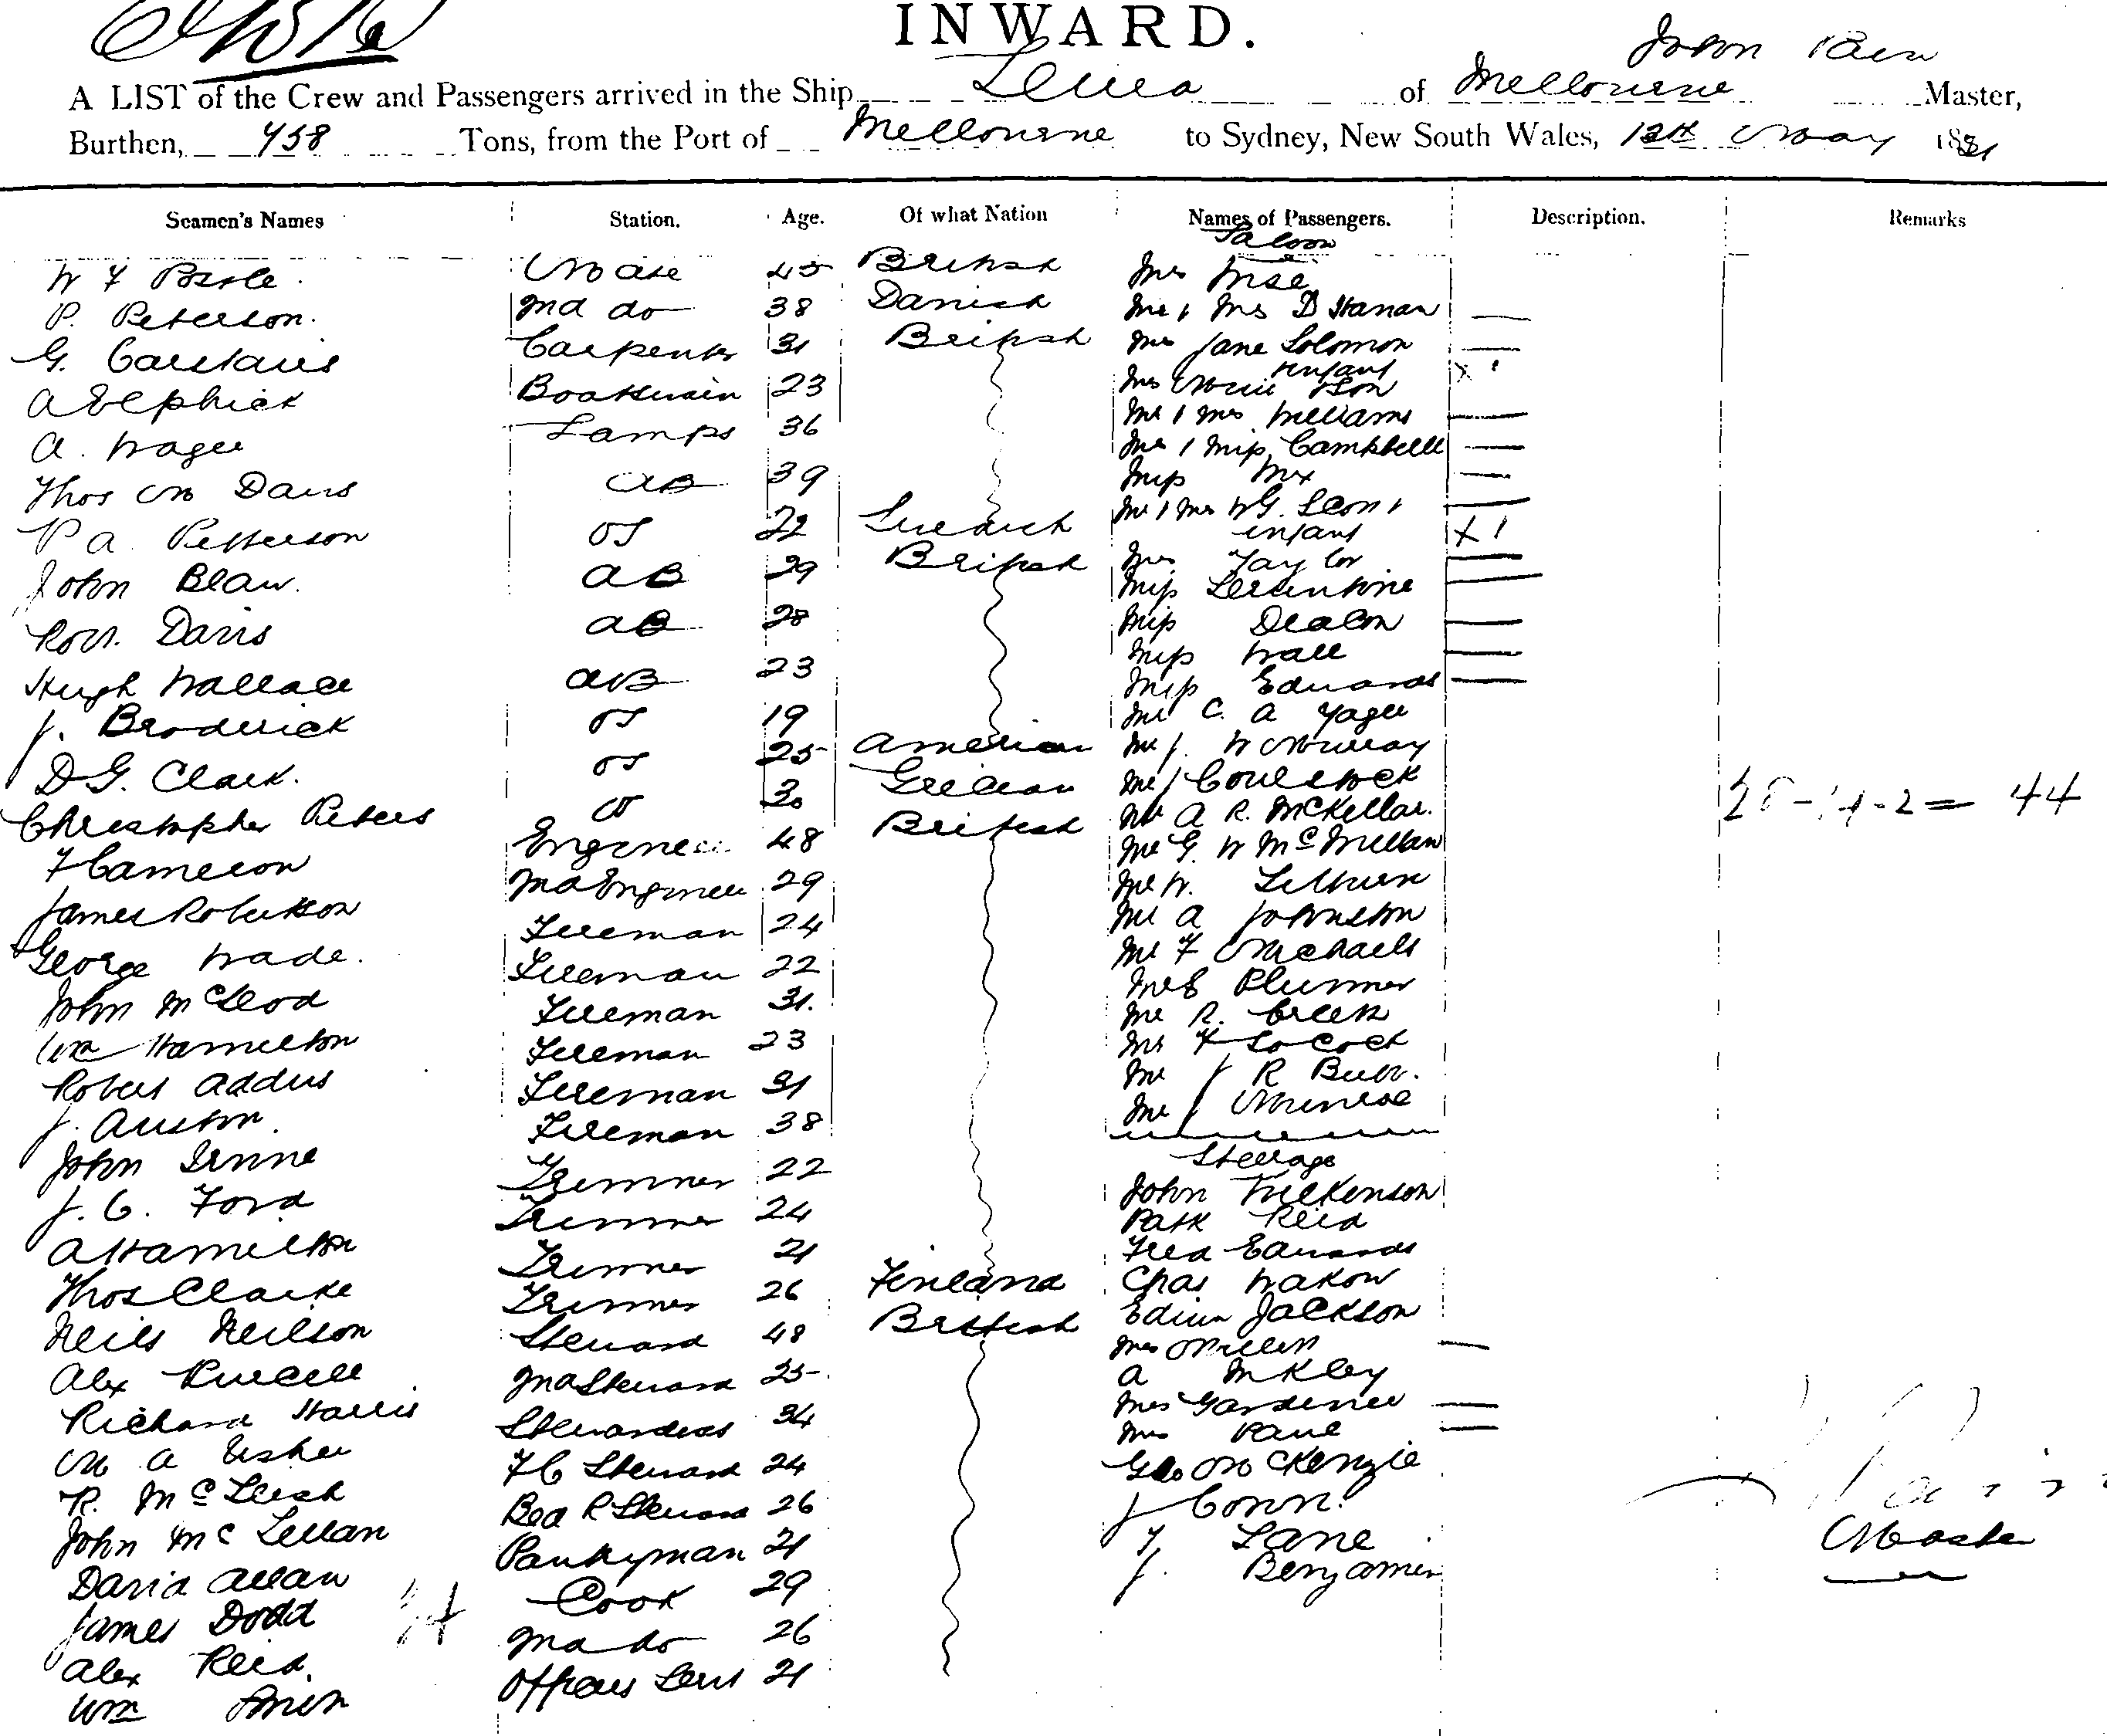 INWARD.
John Pain
A LIST of the Crew and Passengers arrived in the Ship of Melbourne Master,
Burthen, 458 Tons, from the Port of Melbourne to Sydney, New South Wales, 12th May 1881
Seamen's Names Station. Age. Of what Nation Names of Passengers. Description. Remarks
Saloon
W F Mate 45 British Mrs
P. Peterson. 2nd do 38 Danish Mr & Mrs D Hanan
G. Carstairs Carpenter 31 British Mrs Jane Solomon
infant X 1
A Elphick Boatswain 23 Mrs & Son
A. Wager Lamps 36 Mr & Mrs Williams
Mrs & Miss Campbell
Thos M Davis AB 39 Miss
P A. Petterson OS 22 Swedish Mr & Mrs W G. Leon &
infant X 1
John Blaw. AB 29 British Mrs Taylor
Miss
Robt. Davis AB 28 Miss Deacon
Miss Wall
Hugh Wallace AB 23 Miss Edwards
J. Broderick OS 19 Mr C. A Yager
D G. Clark. OS 25 American Mr J. W Murray
Christopher Peters OS 30 Grecian Mr J Coulstock
Mr A R. McKellar. = 44
F Cameron Engineer 48 British Mr G. W McMillan
James Robertson 2nd Engineer 29 Mr W.
George Wade. Fireman 24 Mr A Johnston
John McLeod Fireman 22 Mr F Michaels
Wm Hamilton Fireman 31. Mr E Plummer
Robert Addis Fireman 23 Mr R. Creek
J. Austin. Fireman 31 Mr F Locock
John Irvine Fireman 38 Mr J R Burr.
J. C. Ford Trimmer 22 Mr J Munroe
Steerage
A Hamilton Trimmer 24 John Wilkenson
Thos Clarke Trimmer 21 Patk Reid
Neils Neilson Trimmer 26 Finland Fred Edwards
Alex Purcell Steward 48 British Chas
Richard Harris 2nd Steward 25 Edwin Jackson
M A Usher Stewardess 34 Mrs
R. McLeish F C Steward 24 A
John McLellan Bed R Steward 26 Mrs Gardiner
David Allan Pantryman 21 Mrs Paul
James Dodd Cook 29 Geo McKenzie
Alex Reid. 2nd do 26 J Conn.
Wm Officers Servt 21 T. Lane
J. Benjamin
Master